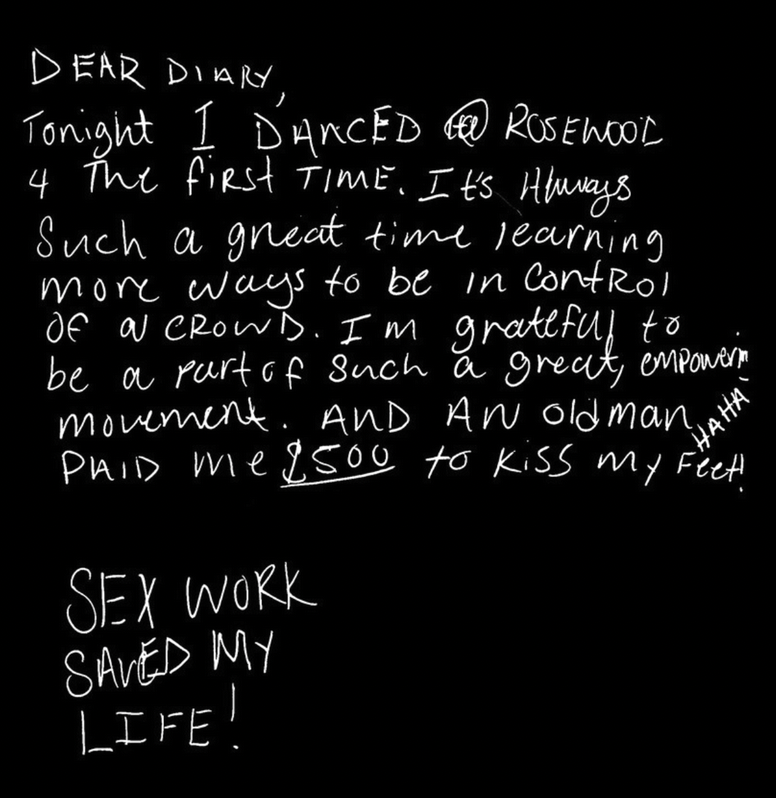 DEAR DIARY,
Tonight I DANCED @ ROSEWOOD
4 The first TIME. It's Always
Such a great time learning
more ways to be in control
of a CROWD. I'm grateful to
be a part of such a great, empowerin
movement. AND AN old man HAHA
PAID me $500 to kiss my Feet!
SEX WORK
SAVED MY
LIFE!